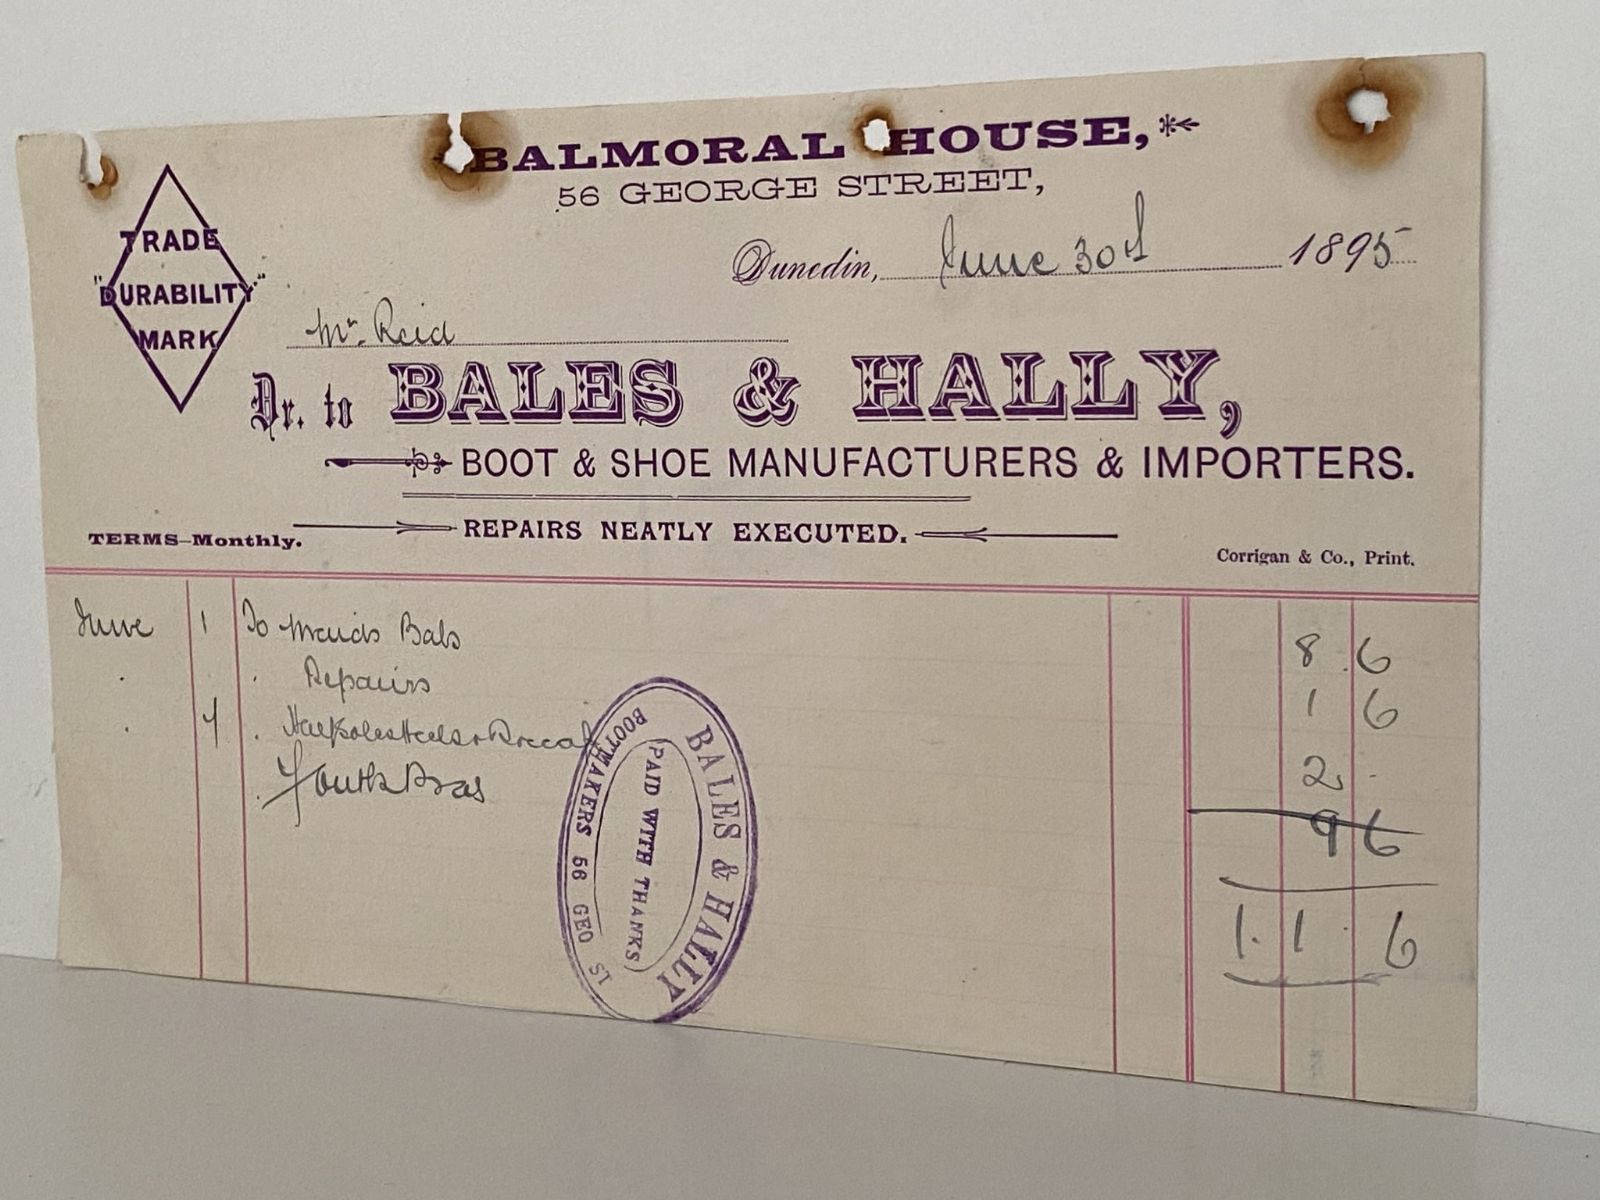 BALMORAL HOUSE,
56 GEORGE STREET,
Dunedin, June 30th 1895
TRADE
"DURABILITY"
MARK
Mr. Reid
Dr. to BALES & HALLY,
BOOT & SHOE MANUFACTURERS & IMPORTERS.
TERMS—Monthly.
REPAIRS NEATLY EXECUTED.
Corrigan & Co., Print.
June 1 To Maids Bals 8 . 6
. . Repairs 1 6
. 4 . 2 .
. Youths Bals 9 6
1 . 1 . 6
BALES & HALLY
PAID WITH THANKS
BOOTMAKERS 56 GEO ST